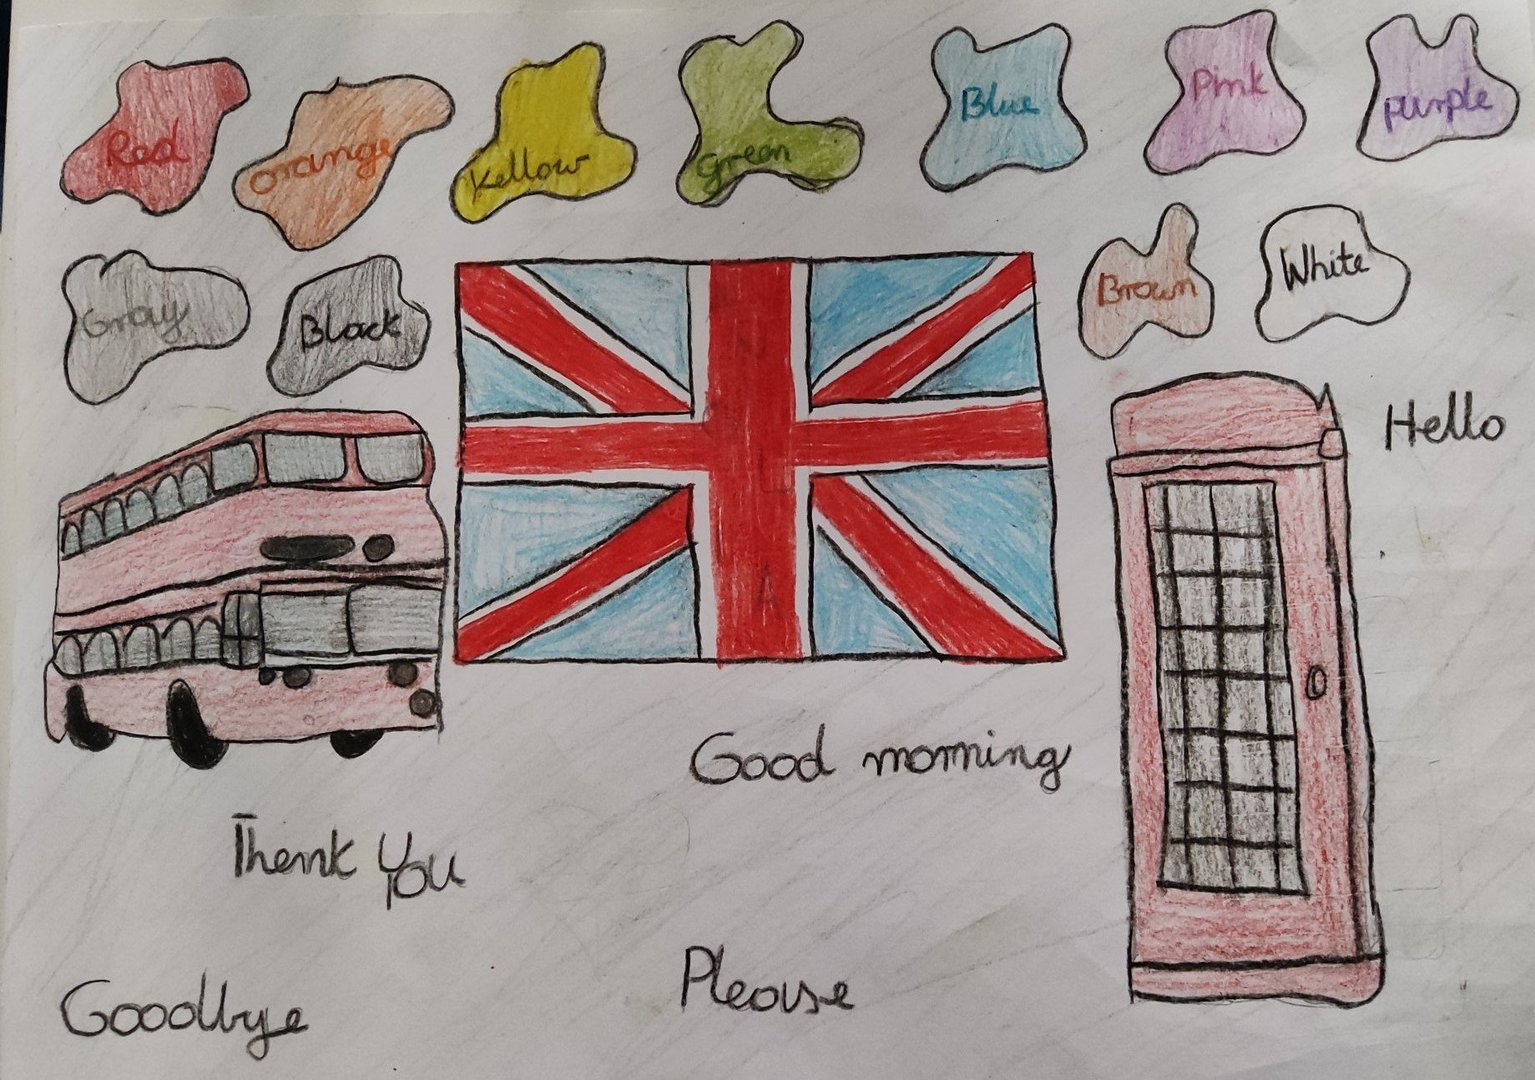 Red
orange
Yellow
green
Blue
Pink
purple
Gray
Black
Brown
White
Hello
Good morning
Thank You
Please
Goodbye